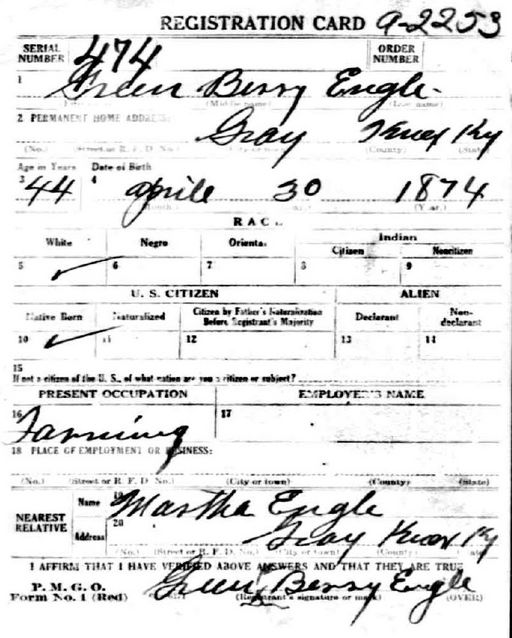 REGISTRATION CARD A-2253
SERIAL NUMBER 474 ORDER NUMBER
1 Green Berry Engle
(Middle name) (Last name)
2 PERMANENT HOME ADDRESS:
Gray Knox Ky
(No.) (Street or R. F. D. No.) (City or town) (County) (State)
Age in Years Date of Birth
3 44 4 Aprile 30 1874
(Month.) (Year.)
RACE
White Negro Oriental Indian
Citizen Noncitizen
5 ✓ 6 7 8 9
U. S. CITIZEN ALIEN
Native Born Naturalized Citizen by Father's Naturalization Before Registrant's Majority Declarant Non-declarant
10 ✓ 11 12 13 14
15
If not a citizen of the U. S., of what nation are you a citizen or subject?
PRESENT OCCUPATION EMPLOYER'S NAME
16 Farming 17
18 PLACE OF EMPLOYMENT OR BUSINESS:
(No.) (Street or R. F. D. No.) (City or town) (County) (State)
NEAREST RELATIVE Name 19 Martha Engle
Address 20 Gray Knox Ky
(No.) (Street or R. F. D. No.) (City or town) (County) (State)
I AFFIRM THAT I HAVE VERIFIED ABOVE ANSWERS AND THAT THEY ARE TRUE
P. M. G. O.
Form No. 1 (Red) Green Berry Engle
(Registrant's signature or mark) (OVER)